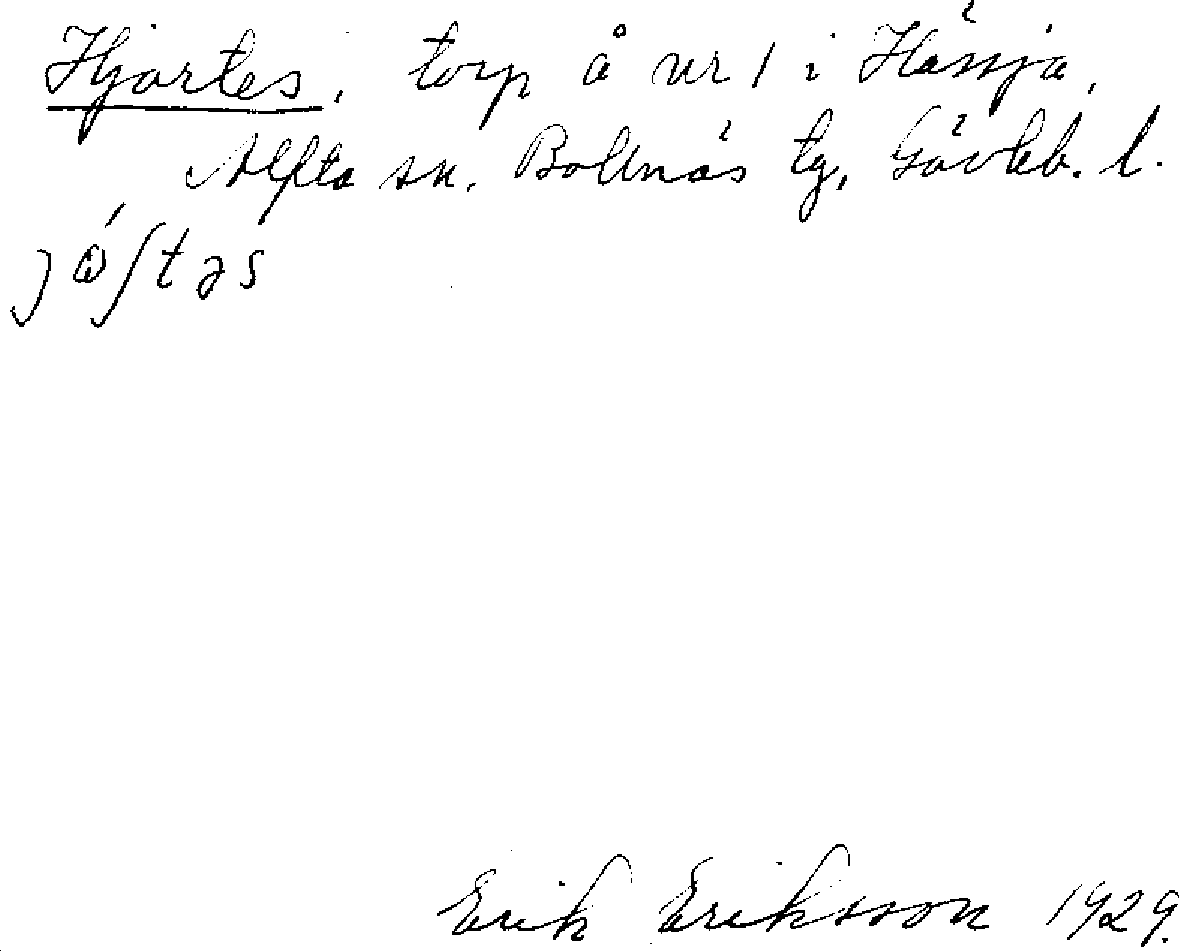 Hjortes, torp å nr 1 i Hässja,
Alfta sn. Bollnäs tg, Gävleb. l.
Erik Eriksson 1929.